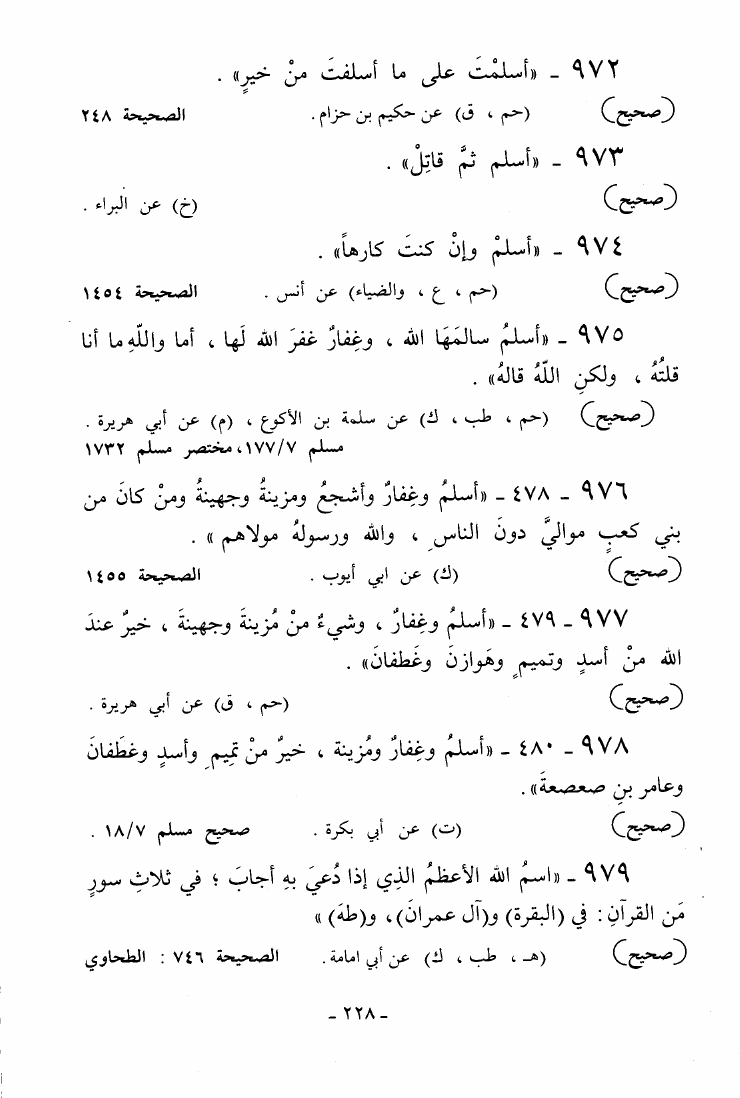 ٩٧٢ ـ «أسلمْتَ على ما أسلفتَ منْ خيرٍ» .
(صحيح) (حم ، ق) عن حكيم بن حزام . الصحيحة ٢٤٨
٩٧٣ ـ «أسلم ثمَّ قاتِلْ» .
(صحيح) (خ) عن البراء .
٩٧٤ ـ «أسلمْ وإنْ كنتَ كارهاً» .
(صحيح) (حم ، ع ، والضياء) عن أنس . الصحيحة ١٤٥٤
٩٧٥ ـ «أسلمُ سالمَهَا الله ، وغِفارٌ غفرَ الله لَها ، أما واللّهِ ما أنا
قلتُهُ ، ولكنِ اللّهُ قالهُ» .
(صحيح) (حم ، طب ، ك) عن سلمة بن الأكوع ، (م) عن أبي هريرة .
مسلم ١٧٧/٧، مختصر مسلم ١٧٣٢
٩٧٦ ـ ٤٧٨ ـ «أسلمُ وغِفارٌ وأشجعُ ومزينةُ وجهينةُ ومنْ كانَ من
بني كعبٍ مواليَّ دونَ الناسِ ، والله ورسولهُ مولاهم» .
(صحيح) (ك) عن ابي أيوب . الصحيحة ١٤٥٥
٩٧٧ ـ ٤٧٩ ـ «أسلمُ وغِفارٌ ، وشيءٌ منْ مُزينةَ وجهينةَ ، خيرٌ عندَ
الله منْ أسدٍ وتميمٍ وهَوازنَ وغَطفانَ» .
(صحيح) (حم ، ق) عن أبي هريرة .
٩٧٨ ـ ٤٨٠ ـ «أسلمُ وغِفارٌ ومُزينة ، خيرٌ منْ تمِيمِ وأسدٍ وغطَفانَ
وعامر بنِ صعصعةَ» .
(صحيح) (ت) عن أبي بكرة . صحيح مسلم ١٨/٧ .
٩٧٩ ـ «اسمُ الله الأعظمُ الذِي إذا دُعيَ بهِ أجابَ ؛ في ثلاثِ سورٍ
مَن القرآنِ : في (البقرة) و(آل عمرانَ)، و(طهَ)»
(صحيح) (هـ ، طب ، ك) عن أبي امامة . الصحيحة ٧٤٦ : الطحاوي
ـ ٢٢٨ ـ